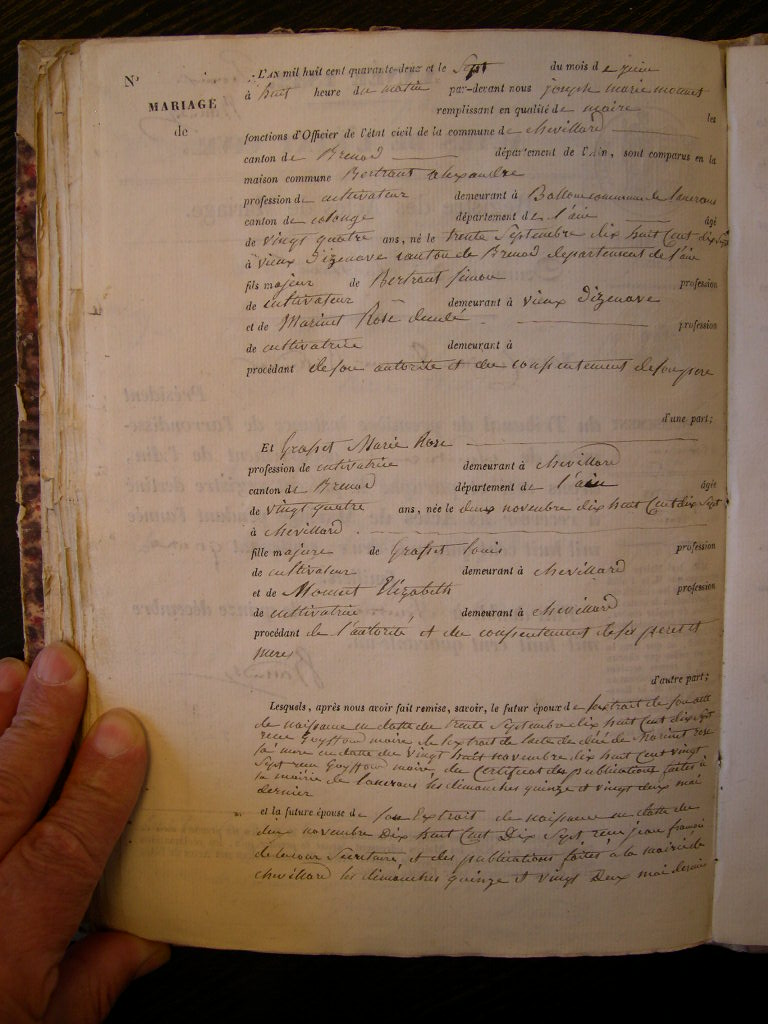 N°
MARIAGE
de
L'AN mil huit cent quarante-deux et le Sept du mois de juin
à huit heure du matin par-devant nous joseph marie mounet
remplissant en qualité de maire les
fonctions d'Officier de l'état civil de la commune de chevillard
canton de Brenod département de l'Ain, sont comparus en la
maison commune Bertrant alexandre
profession de cultivateur demeurant à Ballon commune de lancrans
canton de colonge département de l'ain âgé
de vingt quatre ans, né le trente Septembre dix huit Cent dix Sept
à vieux Dizenave canton de Brenod departement de l'ain
fils majeur de Bertrant Simon profession
de cultivateur demeurant à vieux dizenave
et de Marinet Rose décédé profession
de cultivatrice demeurant à
procédant de son autorité et du consentement de son pere
d'une part;
Et Grasset Marie Rose
profession de cultivatrice demeurant à chevillard
canton de Brenod département de l'ain âgée
de vingt quatre ans, née le deux novembre dix huit Cent dix Sept
à chevillard
fille majure de Grasset Louis profession
de cultivateur demeurant à chevillard
et de Mounet Elizabeth profession
de cultivatrice demeurant à chevillard
procédant de l'autorité et du consentement de ses peres et
meres
d'autre part;
Lesquels, après nous avoir fait remise, savoir, le futur époux de l'extrait de son acte
de naissance en datte du trente Septembre dix huit Cent dix Sept
reçu maire de l'extrait de l'acte de décé de Marinet Rose
Sa mere en datte du vingt huit novembre dix huit Cent vingt
Sept reçu maire, du Certificat des publications faites à
la mairie de lancrans les dimanches quinze et vingt deux mai
dernier
et la future épouse de son Extrait de naissance en datte du
deux novembre Dix huit Cent Dix Sept reçu jean françois
delacour Secretaire, et des publications faites à la mairie de
chevillard les dimanches quinze et vingt Deux mai dernier